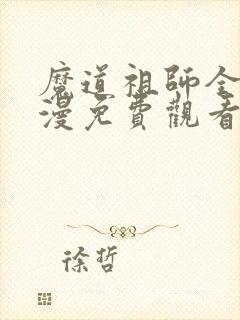 魔道祖師全
漫免費觀看
徐哲